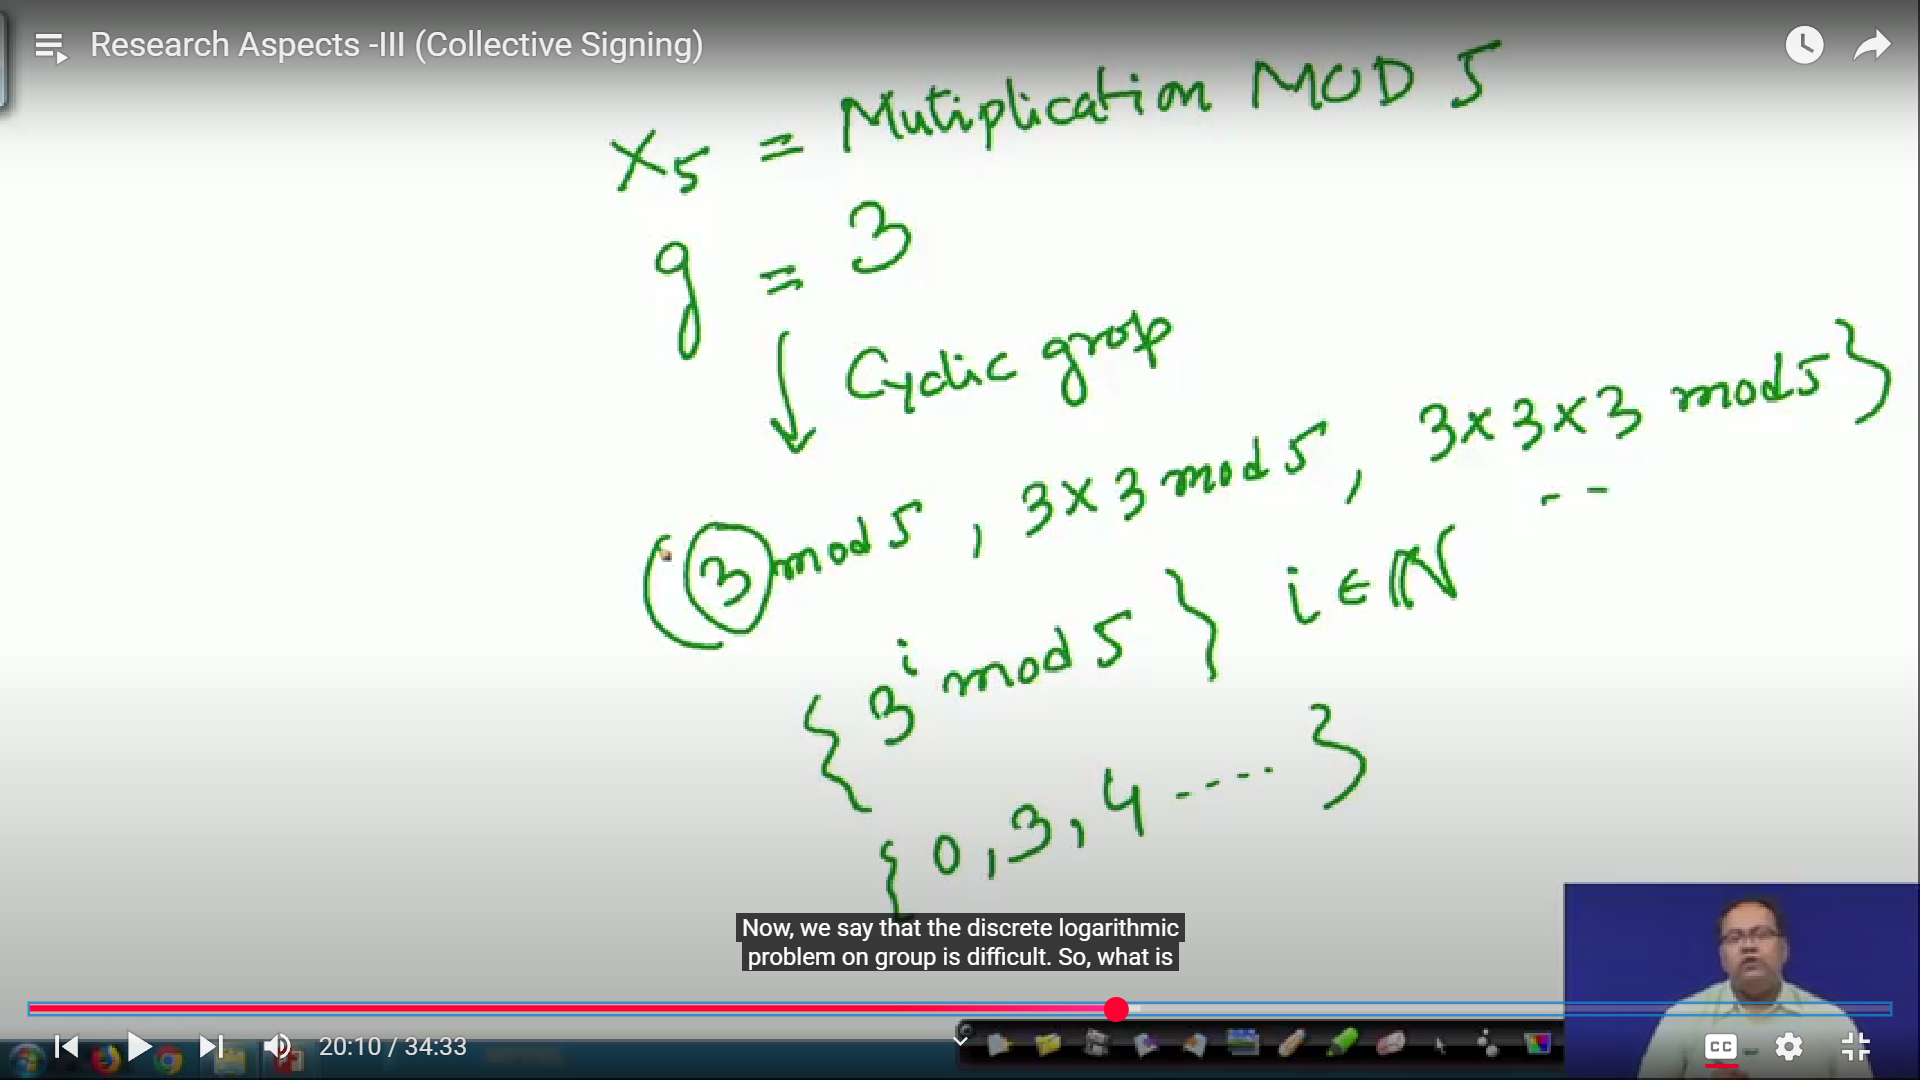 Research Aspects -III (Collective Signing)
X5 = Mutiplication MOD 5
g = 3
Cyclic group
(3 mod 5 , 3x3 mod 5 , 3x3x3 mod 5}
--
{3^i mod 5} i ∈ ℕ
{0,3,4 ----- }
Now, we say that the discrete logarithmic
problem on group is difficult. So, what is
20:10 / 34:33
CC